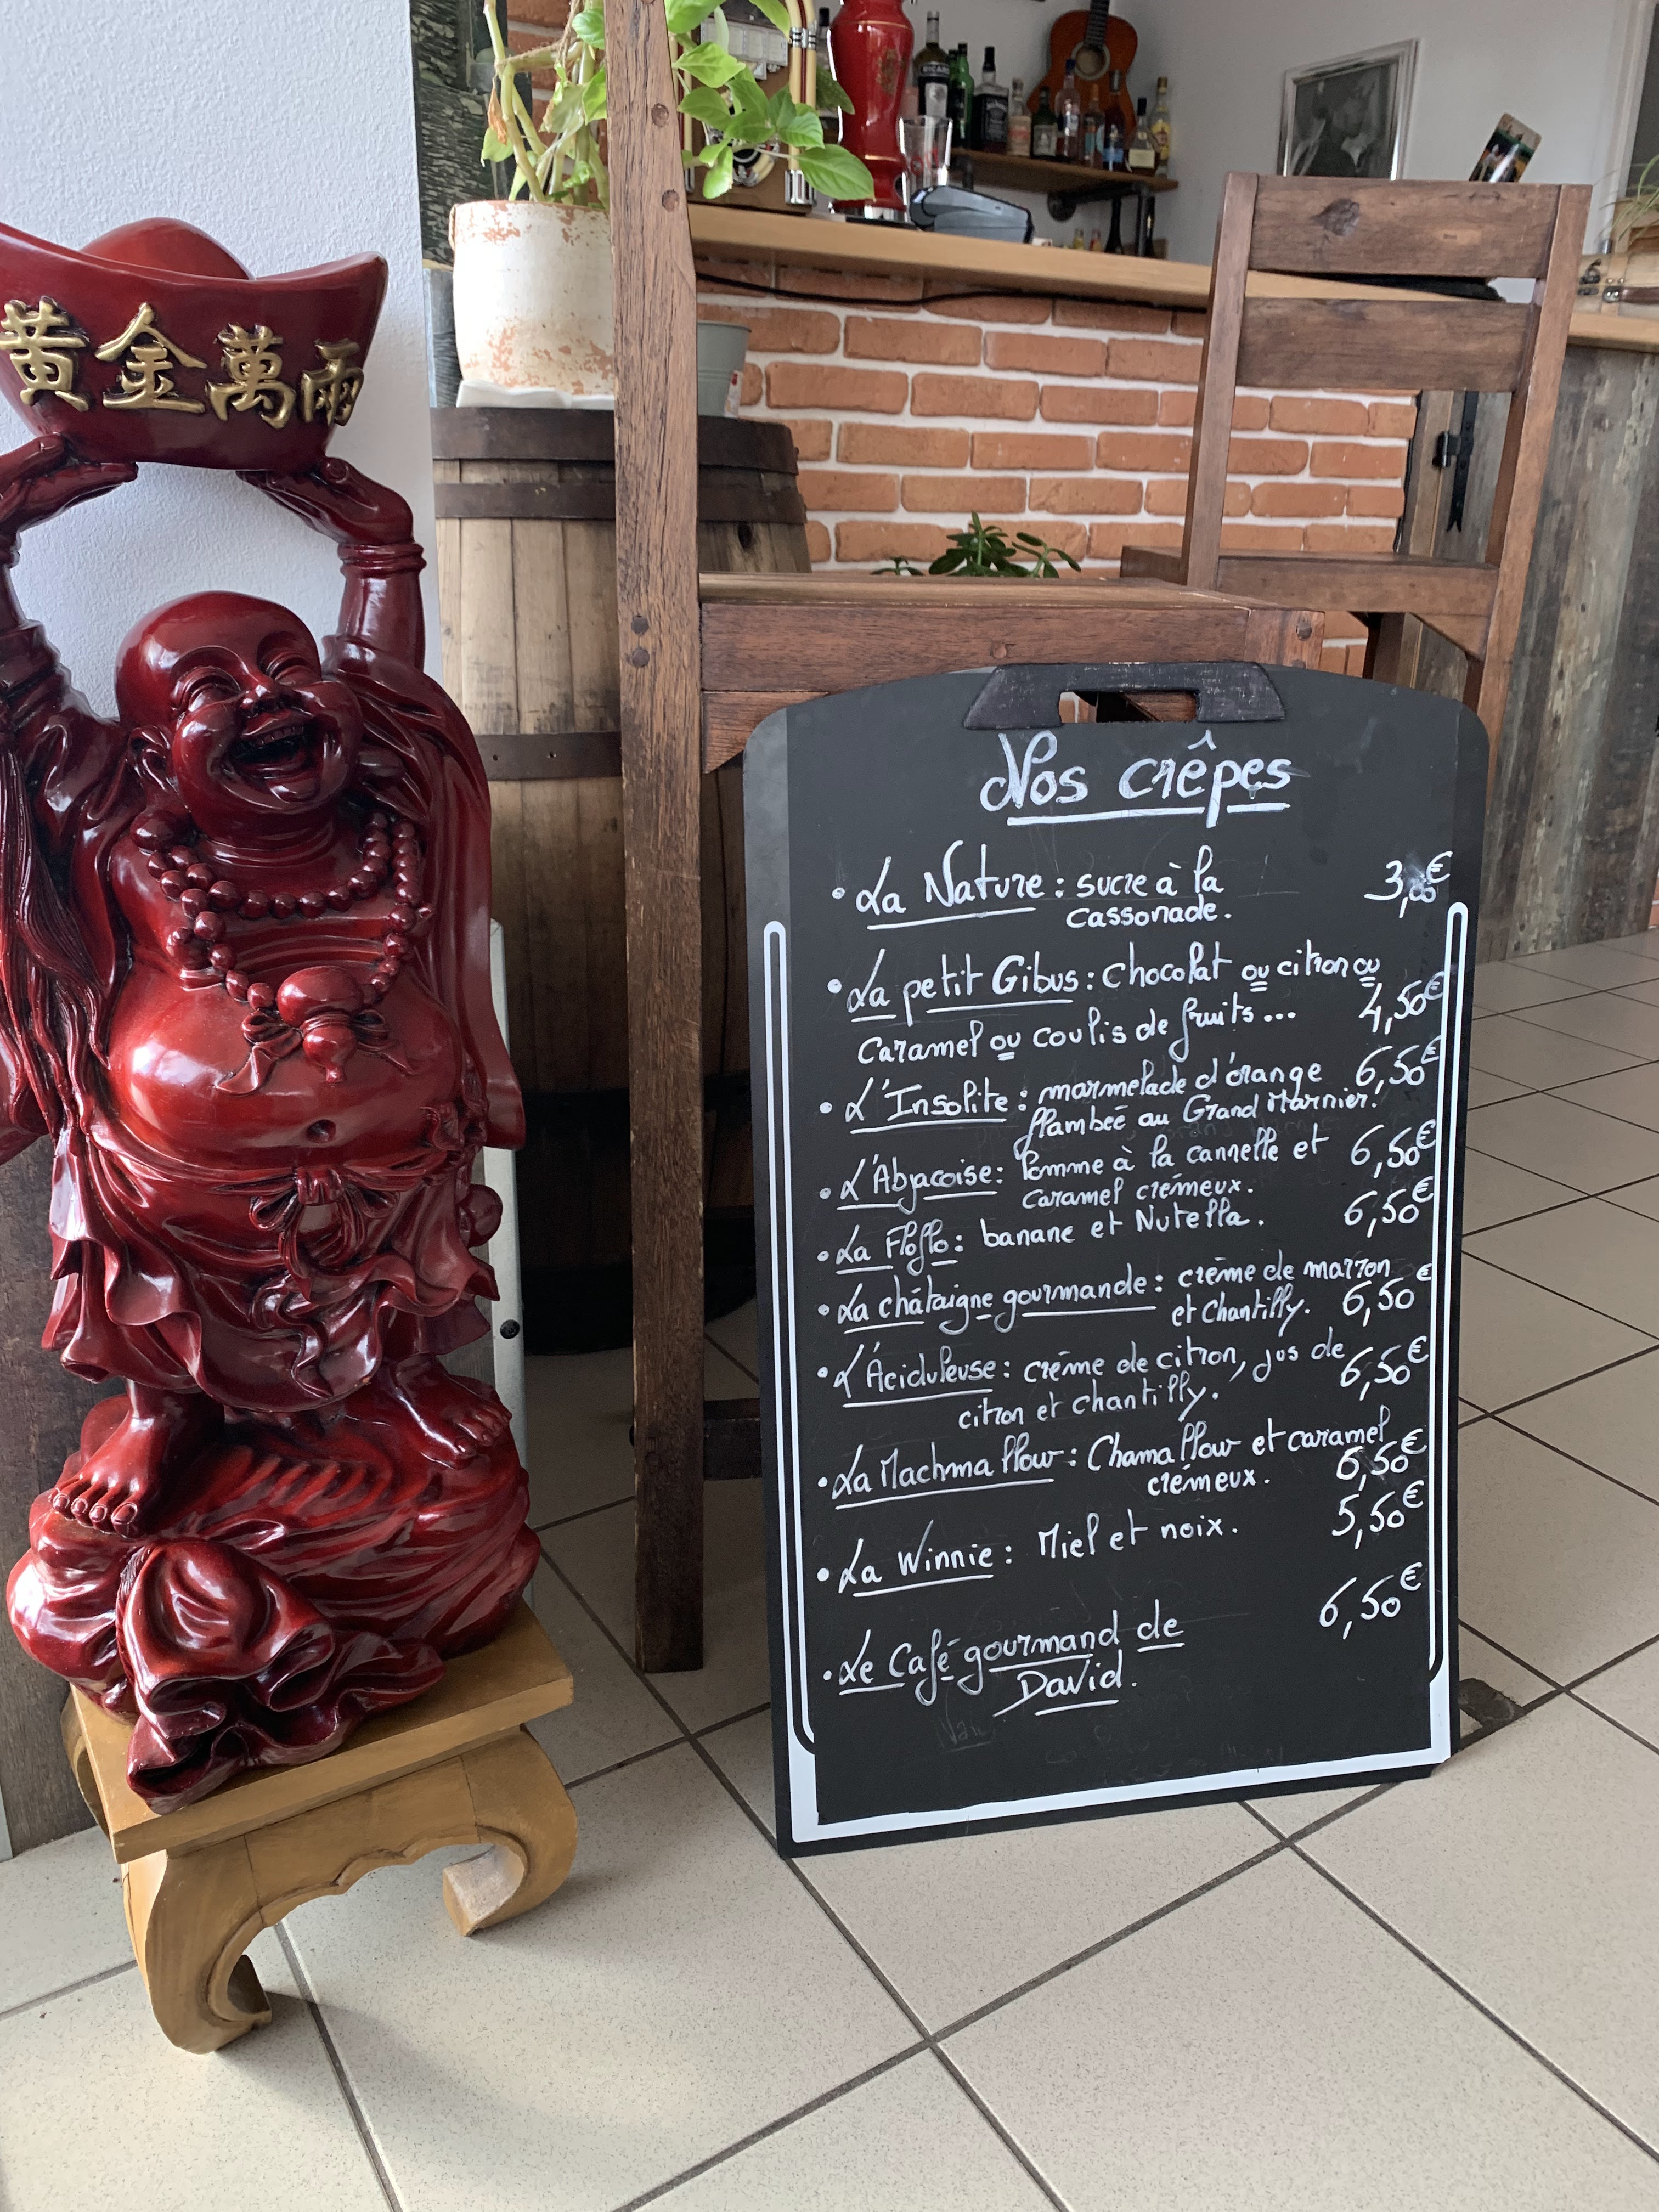 黄金萬兩
Nos crêpes
• La Nature : sucre à la 3,00€
cassonade.
• La petit Gibus : chocolat ou citron ou
caramel ou coulis de fruits... 4,50€
• L'Insolite : marmelade d'orange 6,50€
flambée au Grand Marnier.
• L'Abjacoise : Pomme à la cannelle et 6,50€
caramel crémeux.
• La Floflo : banane et Nutella. 6,50€
• La châtaigne gourmande : crème de marron
et chantilly. 6,50€
• L'Aciduleuse : crème de citron, jus de 6,50€
citron et chantilly.
• La Machmallow : Chamallow et caramel
crémeux. 6,50€
• La Winnie : Miel et noix. 5,50€
• Le Café gourmand de 6,50€
David.